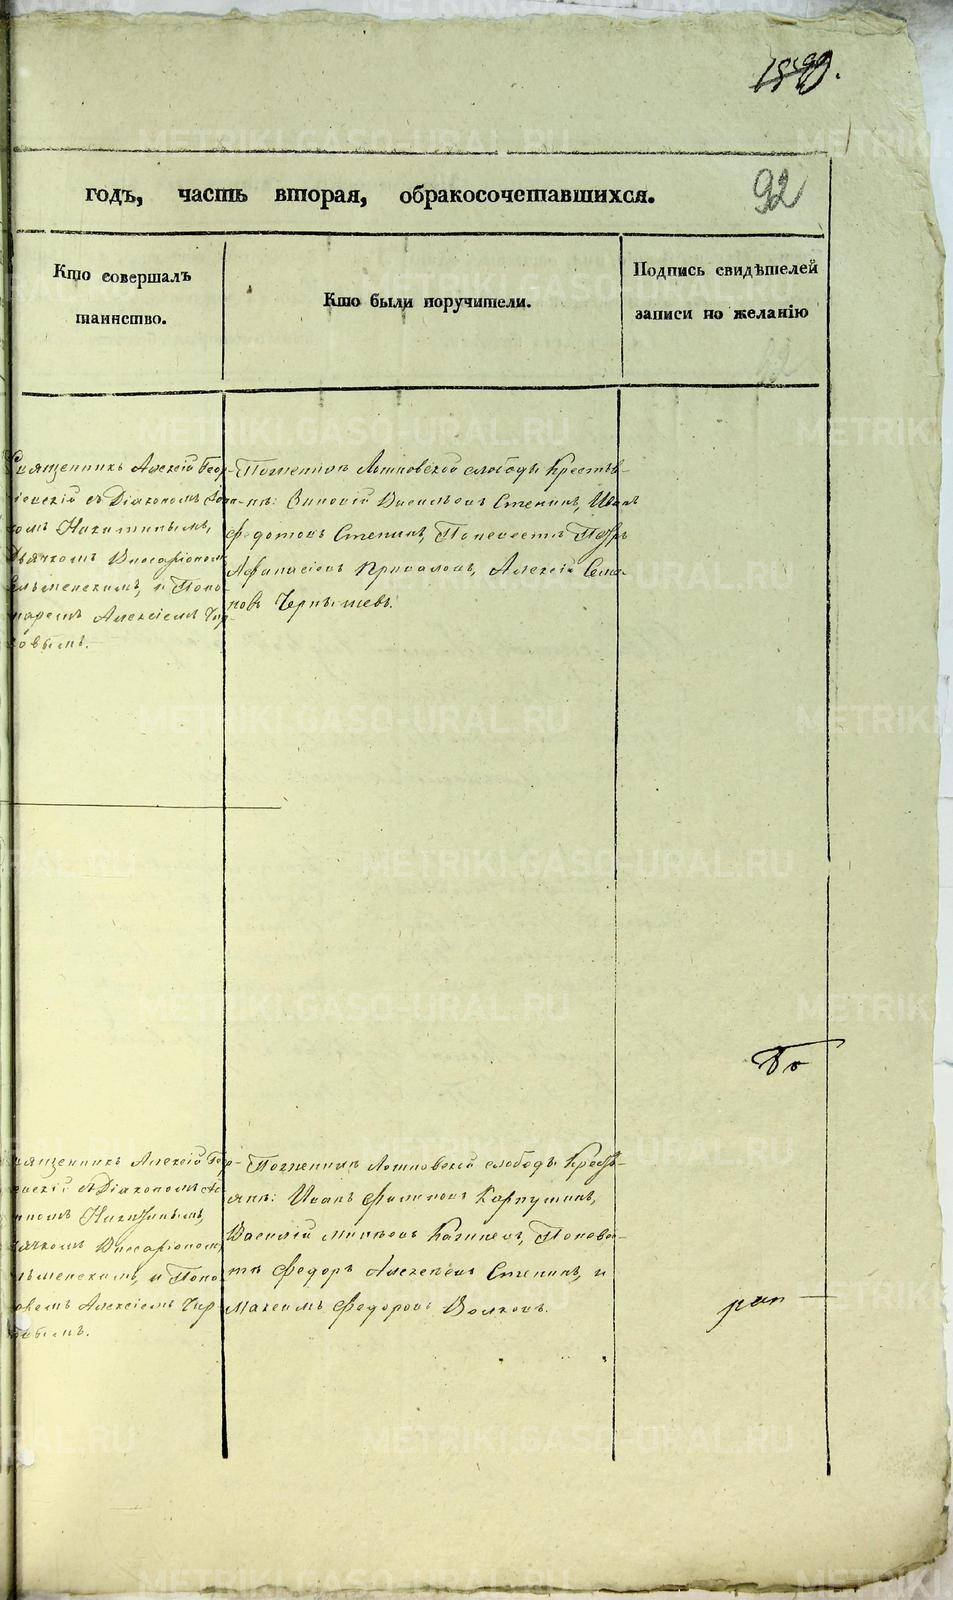 92
годъ, часть вторая, обракосочетавшихся.
Кто совершалъ
таинство.
Кто были поручители.
Подпись свидѣтелей
записи по желанію
Священникъ Алексѣй Геор-
гіевскій съ Діакономъ
Никитинымъ,
Дьячкомъ Виссаріономъ
и Поно-
маремъ Алексіемъ Чир-
ковымъ.
Поженихѣ слободы Крестья-
не: Зиновій Васильевъ Степинъ, Иванъ
Федотовъ Степинъ, По невестѣ Петръ
Афанасіевъ Приваловъ, Алексѣй Семе-
новъ Чернышевъ.
Священникъ Алексѣй Геор-
гіевскій съ Діакономъ
Никитинымъ,
Дьячкомъ Виссаріономъ
и Поно-
маремъ Алексіемъ Чир-
ковымъ.
Поженихѣ слободы Кресть-
яне: Иванъ Филиповъ Карпушинъ,
Василій По невѣс-
тѣ Федоръ Алексѣевъ Степинъ, и
Максимъ Федоровъ Волковъ.
METRIKI.GASO-URAL.RU